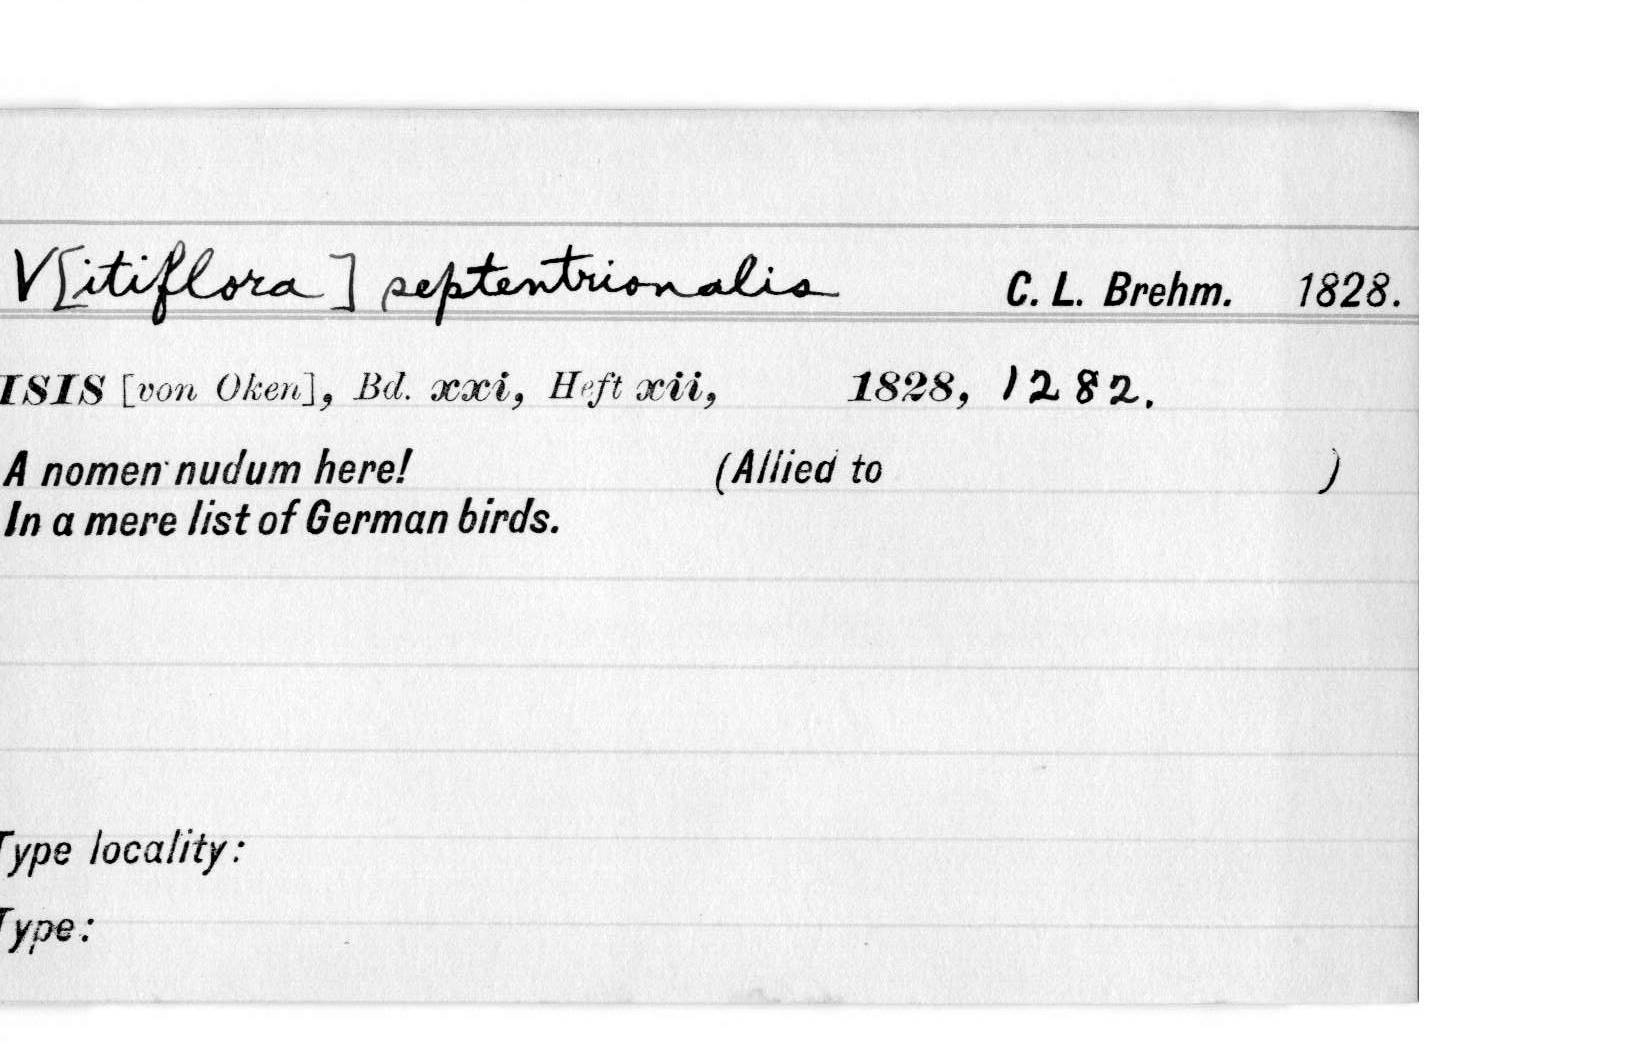 V[itiflora] septentrionalis C. L. Brehm. 1828.
ISIS [von Oken], Bd. xxi, Heft xii, 1828, 1282.
A nomen nudum here! (Allied to )
In a mere list of German birds.
Type locality:
Type: